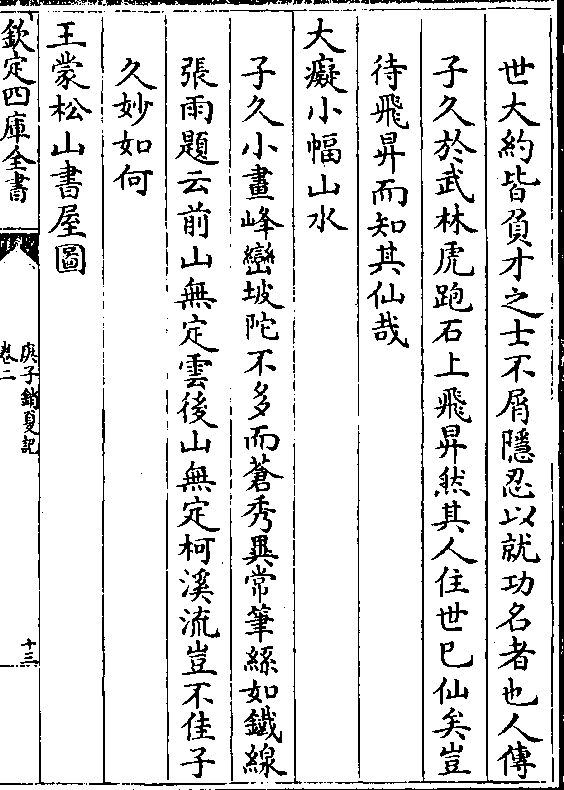 世大約皆負才之士不屑隱忍以就功名者也人傳
子久於武林虎跑石上飛昇然其人住世已仙矣豈
待飛昇而知其仙哉
大癡小幅山水
子久小畫峰巒坡陀不多而蒼秀異常筆絲如鐵線
張雨題云前山無定雲後山無定柯溪流豈不佳子
久妙如何
王蒙松山書屋圖
欽定四庫全書
庚子銷夏記
卷二
十三